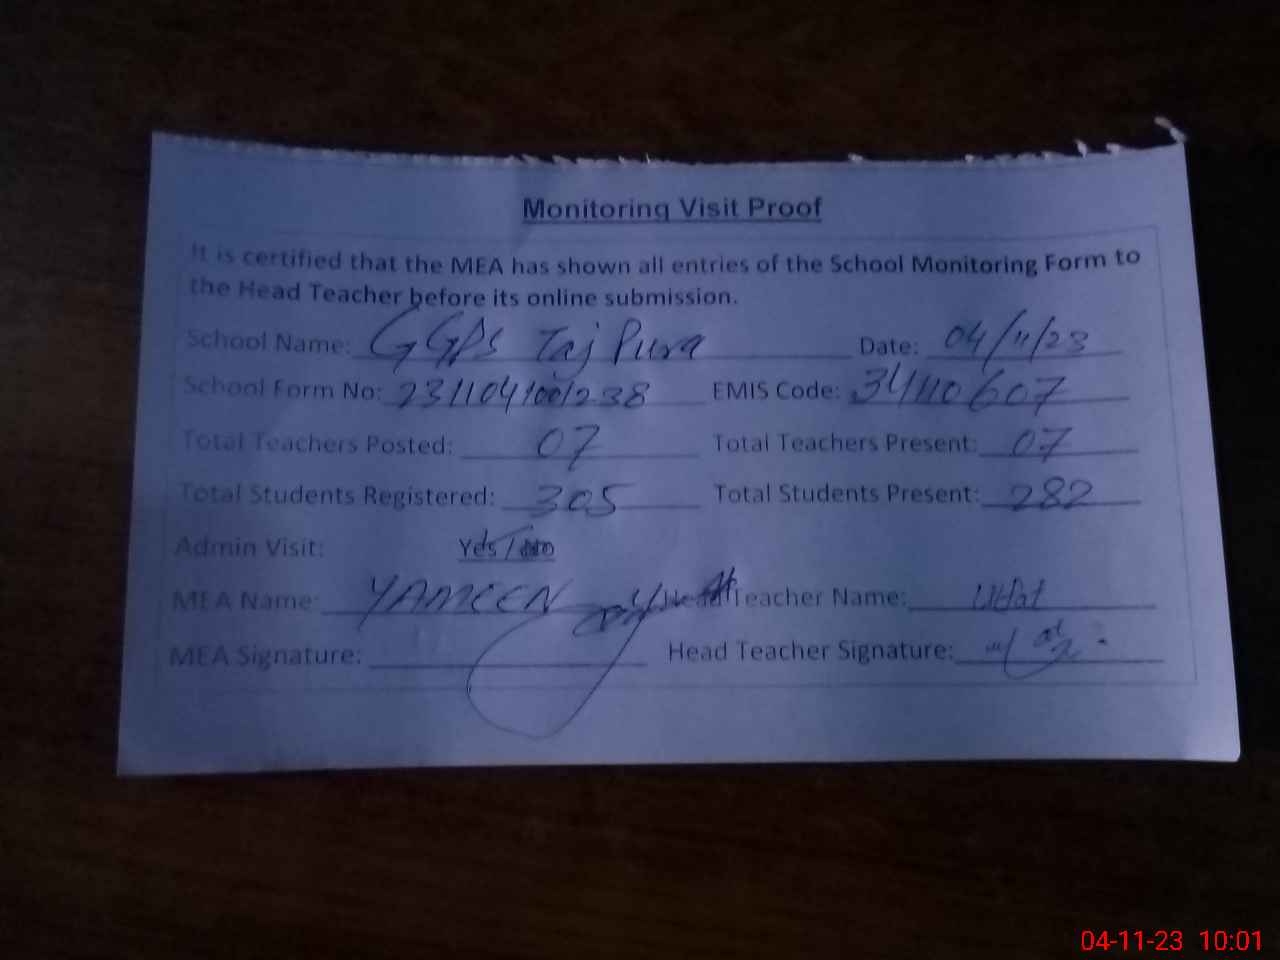 Monitoring Visit Proof
It is certified that the MEA has shown all entries of the School Monitoring Form to
the Head Teacher before its online submission.
School Name: GGPS Taj Pura Date: 04/11/23
School Form No: 231104001238 EMIS Code: 34110607
Total Teachers Posted: 07 Total Teachers Present: 07
Total Students Registered: 305 Total Students Present: 282
Admin Visit: Yes / No
MEA Name: YAMEEN Head Teacher Name:
MEA Signature: Head Teacher Signature:
04-11-23 10:01